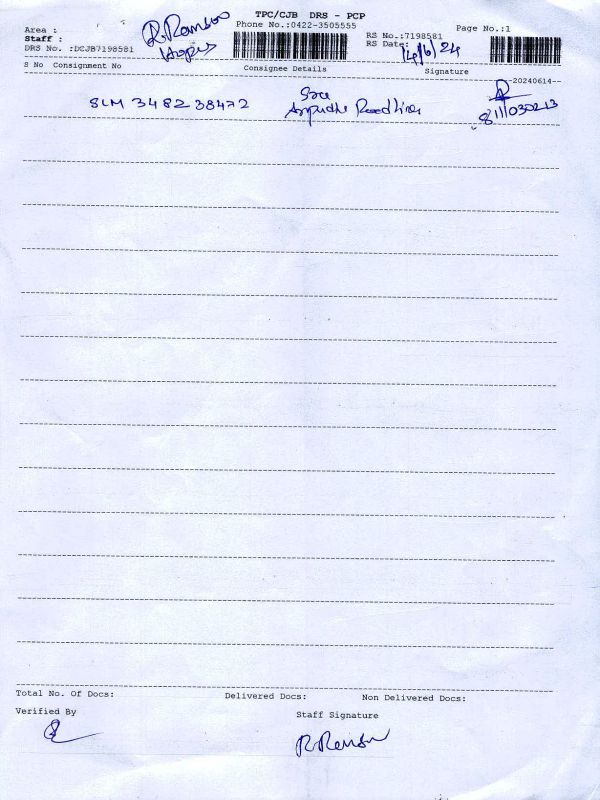 TPC/CJB DRS - PCP
Phone No.:0422-3505555
Page No.:1
Area :
Staff :
DRS No. :DCJB7198581
R. Raman
RS No.:7198581
RS Date: 14/6/24
S No Consignment No Consignee Details Signature
--20240614--
SLM 348238472 Sree
Roadlines
Total No. Of Docs: Delivered Docs: Non Delivered Docs:
Verified By Staff Signature